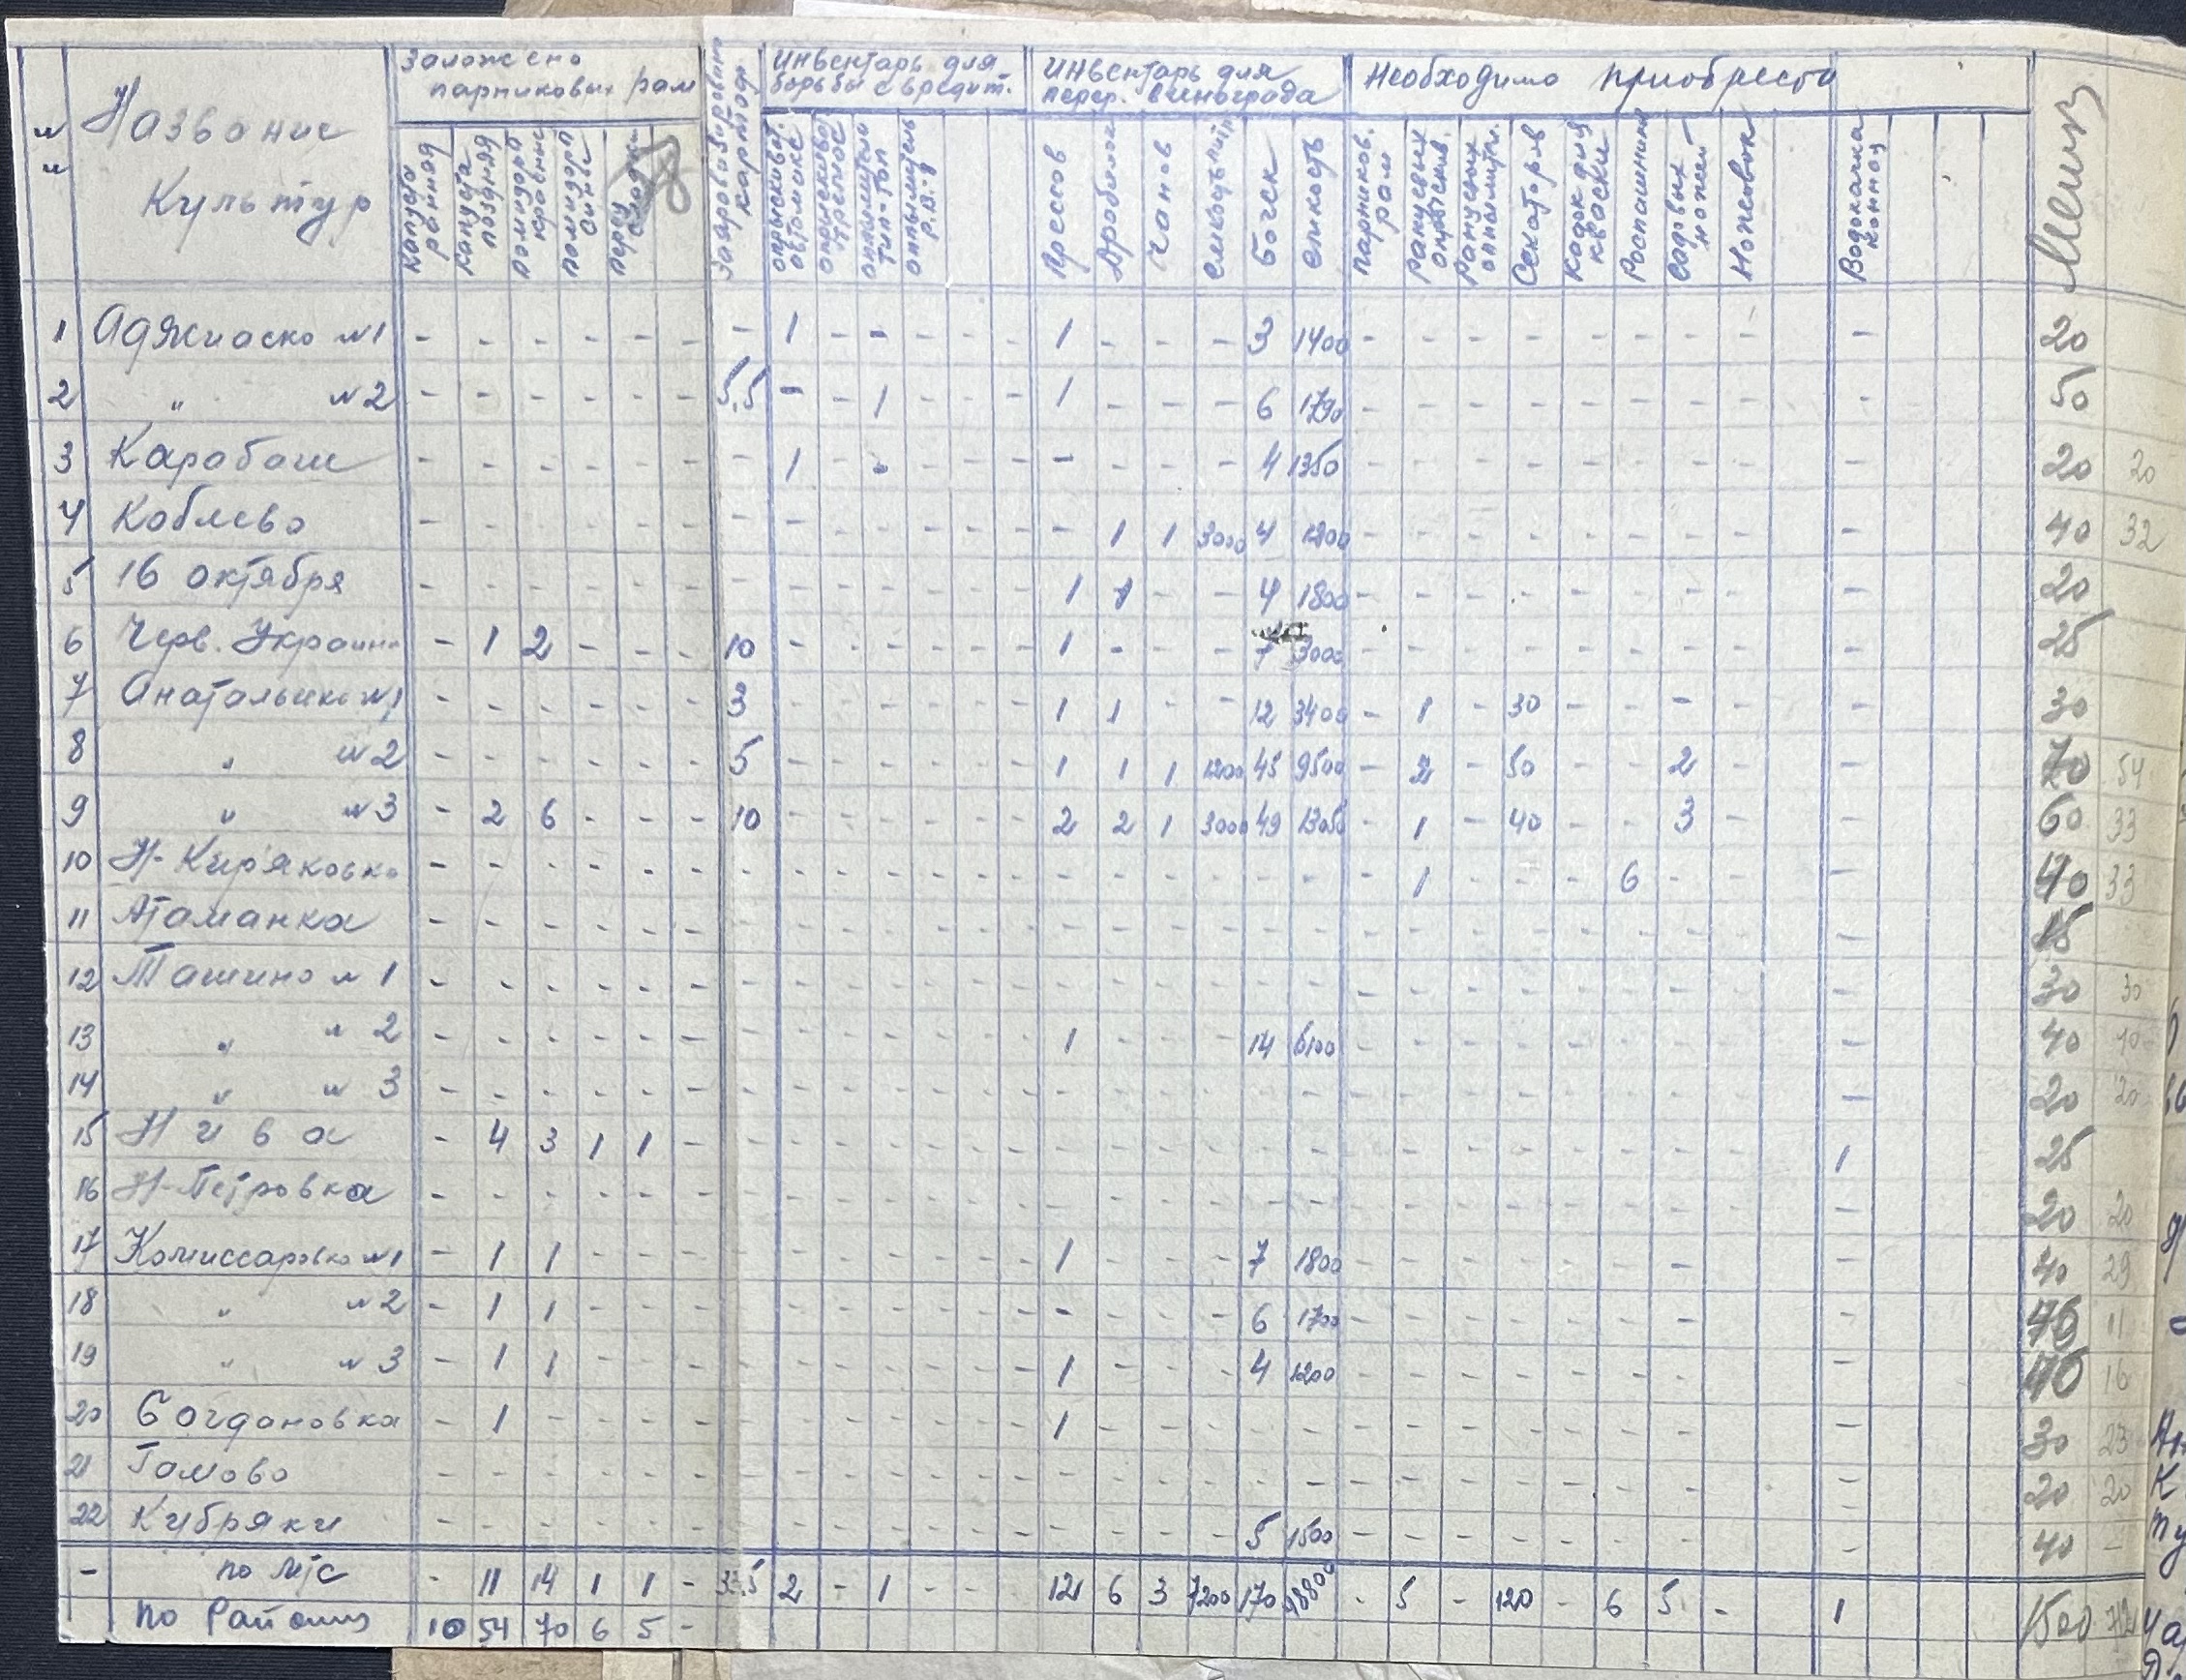 Название Культур
Заложено парниковых рам
Заяровизировано картоф.
Инвентарь для борьбы с вредит.
Инвентарь для перер. винограда
Необходимо приобрести
Капуста ранняя
Капуста поздняя
Помидоры красные
Помидоры синие
Перец сладкий
опрыскиват. автомакс
опылители тип-топ
Прессов
Дробилок
Чанов
Бочек
емкость
парников. рам
Ранцевых опрыскив.
Ранцевых опылит.
Секаторов
Кадок для квас
Садовых ножей
Ножовок
Водокачка конная
1 Аджиаско №1 - - - - - - - 1 - - - - - 1 - - - 3 1400 - - - - - - - - - 20
2 " №2 - - - - - - 5,5 - - 1 - - - 1 - - - 6 1790 - - - - - - - - - 50
3 Карабаш - - - - - - - 1 - - - - - - - - - 4 1350 - - - - - - - - - 20 20
4 Коблево - - - - - - - - - - - - - - 1 1 3000 4 1200 - - - - - - - - - 40 32
5 16 октября - - - - - - - - - - - - - 1 1 - - 4 1800 - - - - - - - - - 20
6 Черв. Украина - 1 2 - - - 10 - - - - - - 1 - - - 7 3000 - - - - - - - - - 25
7 Анатольевка №1 - - - - - - 3 - - - - - - 1 1 - - 12 3400 - 1 - 30 - - - - - 30
8 " №2 - - - - - - 5 - - - - - - 1 1 1 1200 45 9500 - 2 - 50 - - 2 - - 70 54
9 " №3 - 2 6 - - - 10 - - - - - - 2 2 1 3000 49 13050 - 1 - 40 - - 3 - - 60 33
10 Н-Кир'яковка - - - - - - - - - - - - - - - - - - - - 1 - - - 6 - - - 40 33
11 Атаманка - - - - - - - - - - - - - - - - - - - - - - - - - - - - 15
12 Ташино №1 - - - - - - - - - - - - - - - - - - - - - - - - - - - - 30 30
13 " №2 - - - - - - - - - - - - - 1 - - - 14 6100 - - - - - - - - - 40 40
14 " №3 - - - - - - - - - - - - - - - - - - - - - - - - - - - - 20 20
15 Нива - 4 3 1 1 - - - - - - - - - - - - - - - - - - - - - - 1 25
16 Н-Петровка - - - - - - - - - - - - - - - - - - - - - - - - - - - - 20 20
17 Комиссаровка №1 - 1 1 - - - - - - - - - - 1 - - - 7 1800 - - - - - - - - - 40 29
18 " №2 - 1 1 - - - - - - - - - - - - - - 6 1700 - - - - - - - - - 11
19 " №3 - 1 1 - - - - - - - - - - 1 - - - 4 1200 - - - - - - - - - 16
20 Богдановка - 1 - - - - - - - - - - - 1 - - - - - - - - - - - - - - 30 23
21 Гамово - - - - - - - - - - - - - - - - - - - - - - - - - - - - 20 20
22 Кубряки - - - - - - - - - - - - - - - - - 5 1500 - - - - - - - - - 40 -
- по м/с - 11 14 1 1 - 33.5 2 - 1 - - - 12 6 3 7200 170 - 5 - 120 - 6 5 - 1 1500
по Району 10 54 70 6 5 -